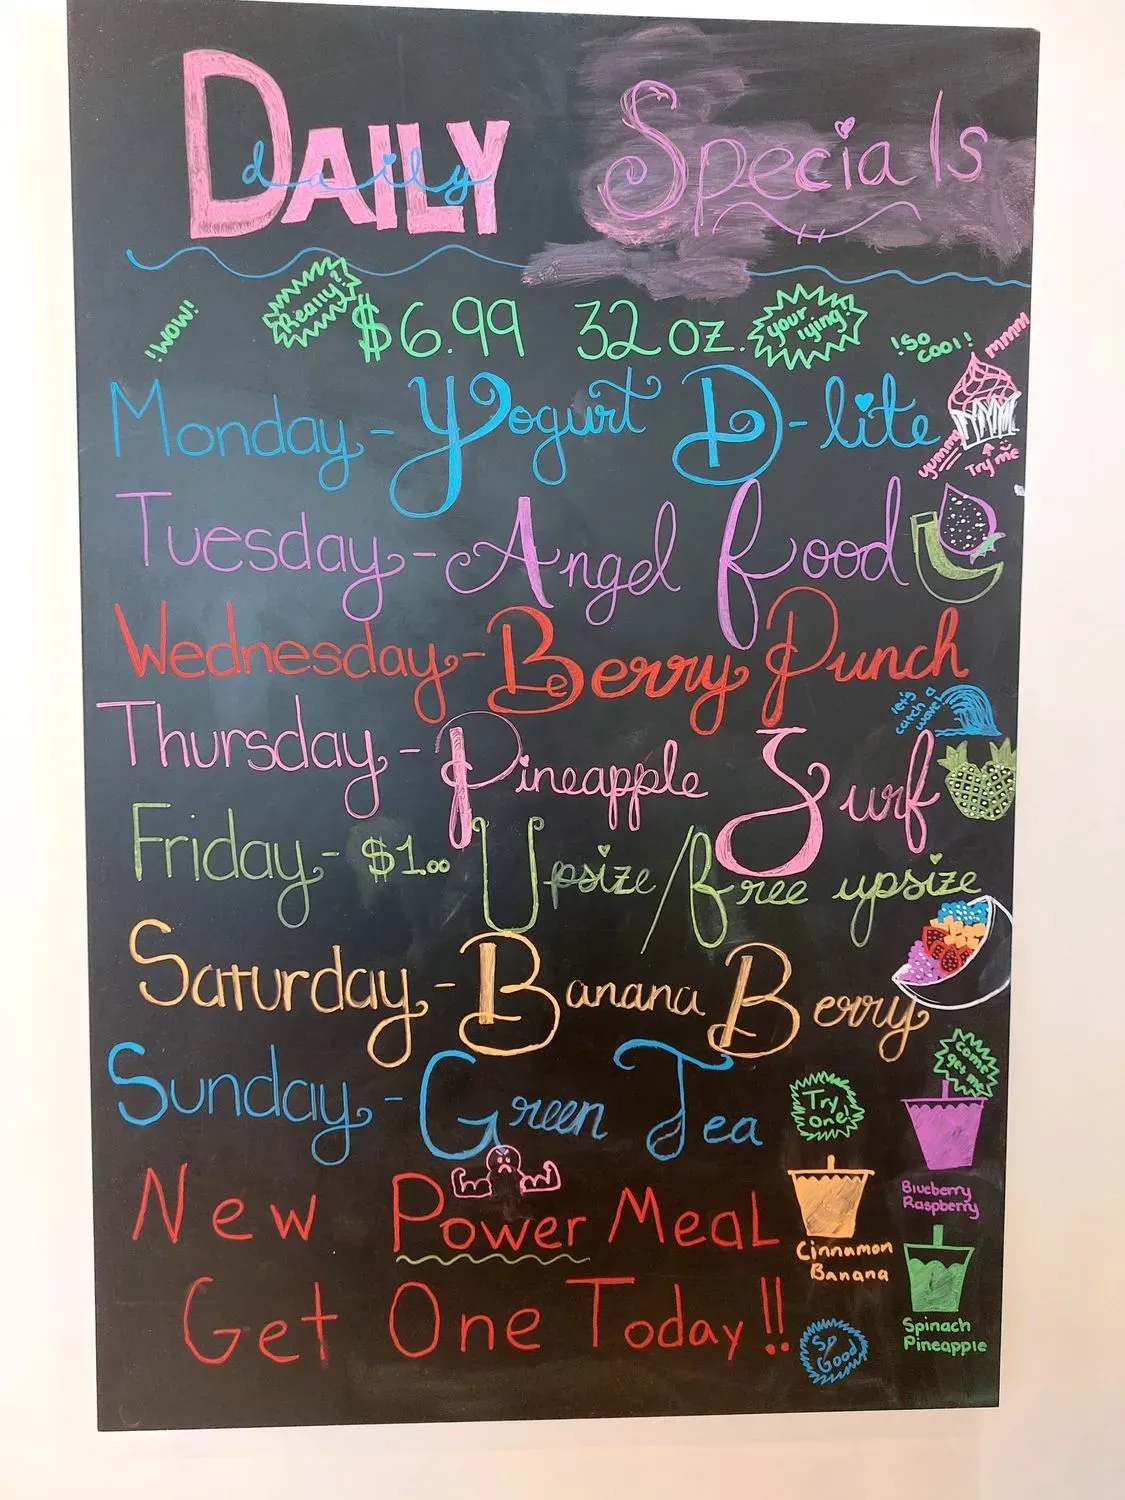 DAILY Specials
daily
!WOW! Really!? $6.99 32 oz. your lying! !SO COOL!!
mmm
Monday - Yogurt D-lite
yummy Try me
Tuesday - Angel Food
Wednesday - Berry Punch
let's catch a wave!
Thursday - Pineapple Surf
Friday - $1.00 Upsize/free upsize
Saturday - Banana Berry
Sunday - Green Tea
Come get me
Try One!
Blueberry
Raspberry
New Power Meal
Cinnamon
Banana
Get One Today!!
Spinach
Pineapple
So Good